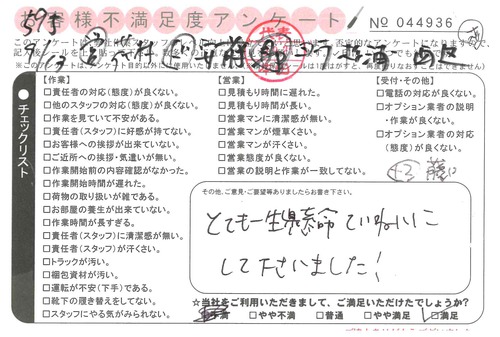 お客様不満足度アンケート
No 044936
※このアンケートは、アンケート目的以外には使用いたしません
チェックリスト
【作業】
□責任者の対応(態度)が良くない。
□他のスタッフの対応(態度)が良くない。
□作業を見ていて不安がある。
□責任者(スタッフ)に好感が持てない。
□お客様への挨拶が出来ていない。
□ご近所への挨拶・気遣いが無い。
□作業開始前の内容確認がなかった。
□作業開始時間が遅れた。
□荷物の取り扱いが雑である。
□お部屋の養生が出来ていない。
□作業時間が長すぎる。
□責任者(スタッフ)に清潔感が無い。
□責任者(スタッフ)が汗くさい。
□トラックが汚い。
□梱包資材が汚い。
□運転が不安(下手)である。
□靴下の履き替えをしてない。
□スタッフにやる気がみられない。
【営業】
□見積もりに遅れた。
□見積もり時間が長い。
□営業マンに清潔感が無い。
□営業マンが煙草くさい。
□営業マンが汗くさい。
□営業態度が良くない。
□営業の説明と作業が一致してない。
【受付・その他】
□電話の対応が良くない。
□オプション業者の説明
・作業が良くない。
□オプション業者の対応
(態度)が良くない。
その他、ご意見・ご要望等ありましたらお書き下さい。
とても一生懸命ていねいに
して下さいました!
☆当社をご利用いただきまして、ご満足いただけたでしょうか?
□やや不満 □普通 □やや満足 □満足